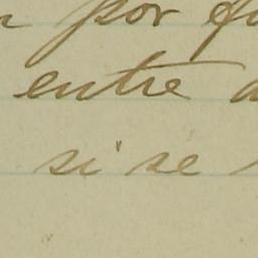 por
entre
si se